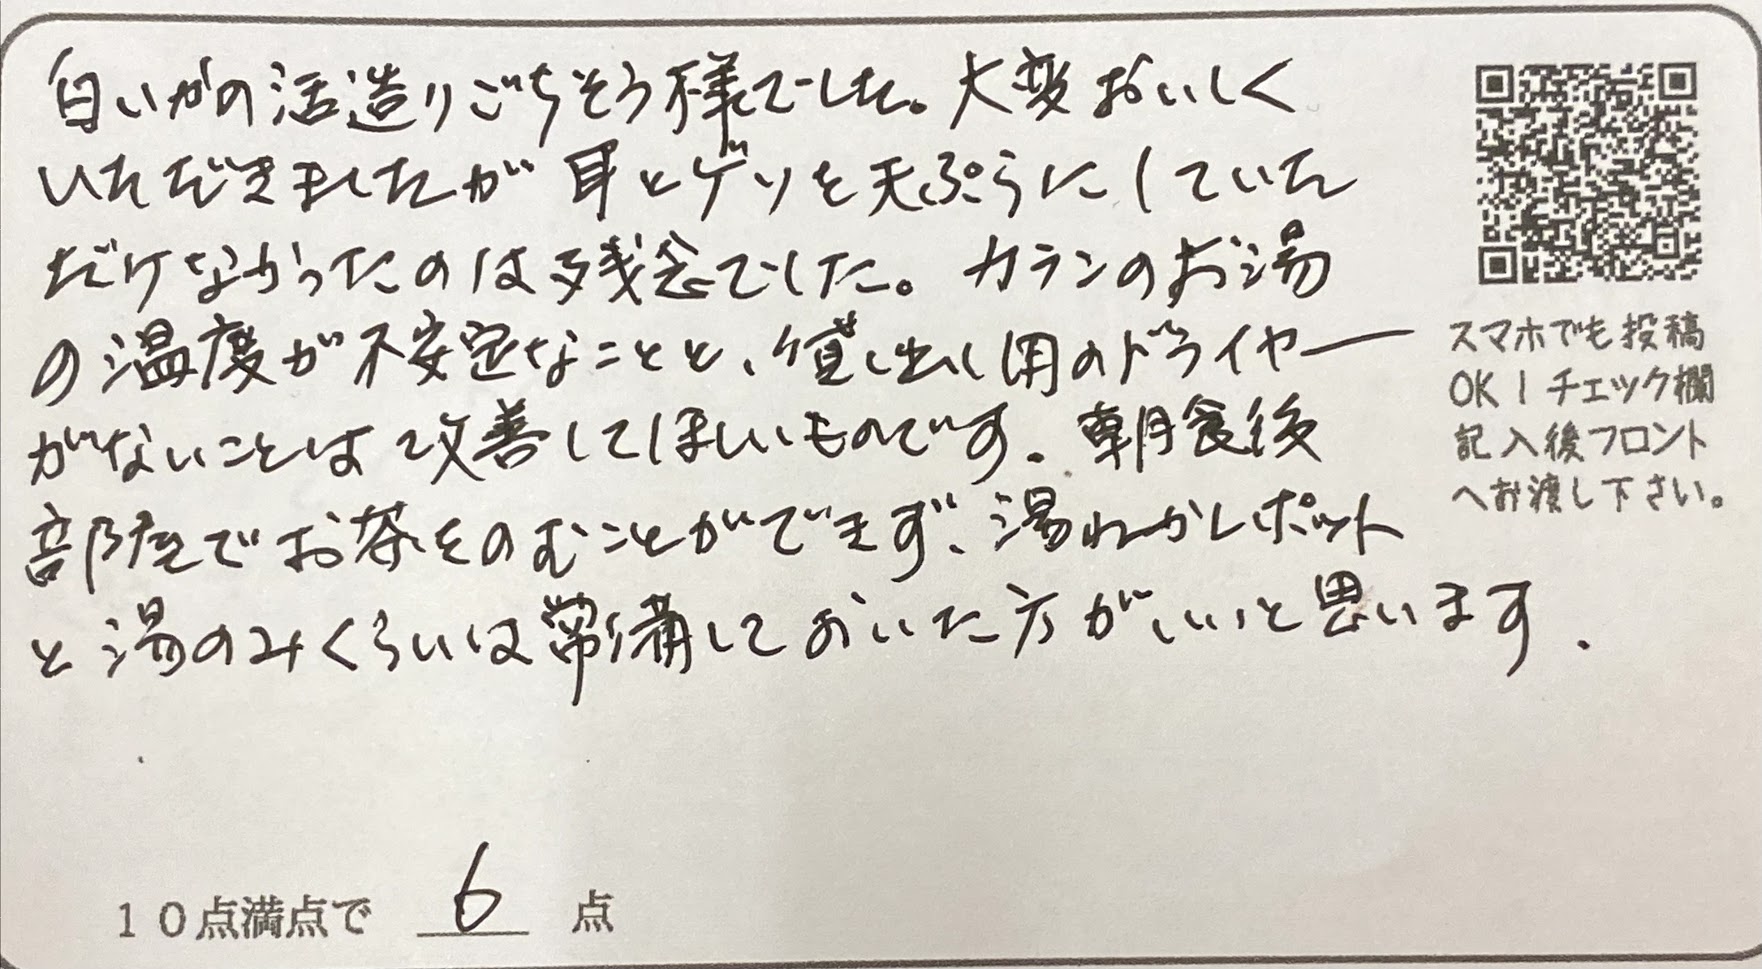 白いかの活造りごちそう様でした。大変おいしく
いただきましたが耳とゲソを天ぷらにしていた
だけなかったのは残念でした。カランのお湯
の温度が不安定なことと、貸し出し用のドライヤー
がないことは改善してほしいものです。朝食後
部屋でお茶をのむことができず、湯わかしポット
と湯のみくらいは常備しておいた方がいいと思います.
スマホでも投稿
OK！チェック欄
記入後フロント
へお渡し下さい。
10点満点で 6 点